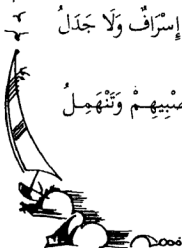 إِسْرَافٌ وَلَا جَدَلُ
صْبِيهِمْ وَتَنْهَمِلُ